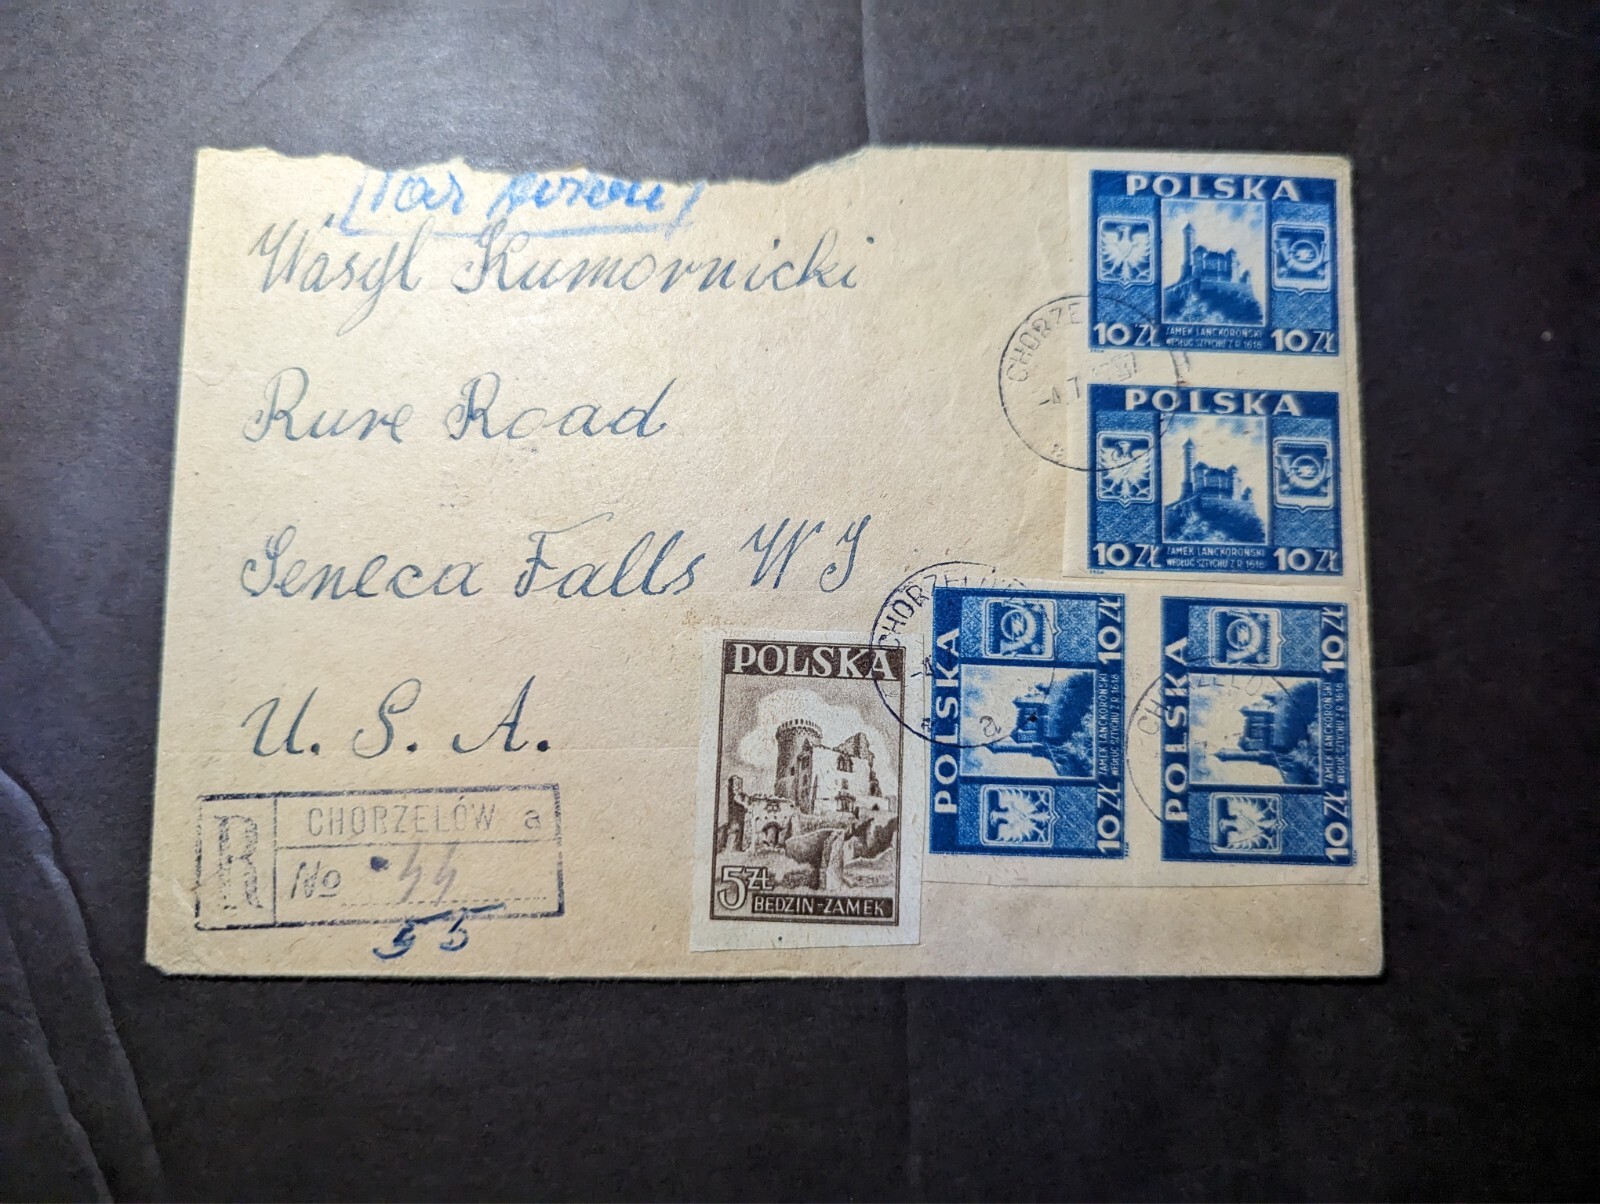 Par avion
Wasyl Kumornicki
Rure Road
Seneca Falls W J
U. S. A.
CHORZELÓW a
R
No 44
55
POLSKA
10 ZŁ ZAMEK LANCKOROŃSKI 10 ZŁ
WEDŁUG SZTYCHU Z R. 1618
POLSKA
10 ZŁ ZAMEK LANCKOROŃSKI 10 ZŁ
WEDŁUG SZTYCHU Z R. 1618
POLSKA
10 ZŁ ZAMEK LANCKOROŃSKI 10 ZŁ
WEDŁUG SZTYCHU Z R. 1618
POLSKA
10 ZŁ ZAMEK LANCKOROŃSKI 10 ZŁ
WEDŁUG SZTYCHU Z R. 1618
POLSKA
5 ZŁ
BĘDZIN-ZAMEK
CHORZE
-4.7
CHORZELÓW
-4
a